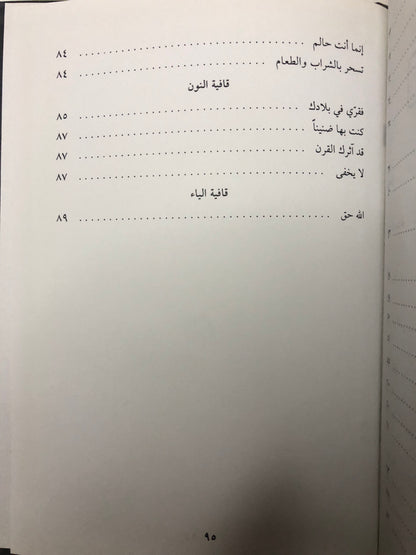 إنما أنت حالم . . . . . . . . . . . . . . . . . . . . . . . . . . . . . . ٨٤
تسحر بالشراب والطعام . . . . . . . . . . . . . . . . . . . . . . . . ٨٤
قافية النون
فقرّي في بلادك . . . . . . . . . . . . . . . . . . . . . . . . . . . . ٨٥
كنت بها ضنيناً . . . . . . . . . . . . . . . . . . . . . . . . . . . . ٨٧
قد آثرك القرن . . . . . . . . . . . . . . . . . . . . . . . . . . . . ٨٧
لا يخفى . . . . . . . . . . . . . . . . . . . . . . . . . . . . . . . . ٨٧
قافية الياء
الله حق . . . . . . . . . . . . . . . . . . . . . . . . . . . . . . . . ٨٩
٩٥